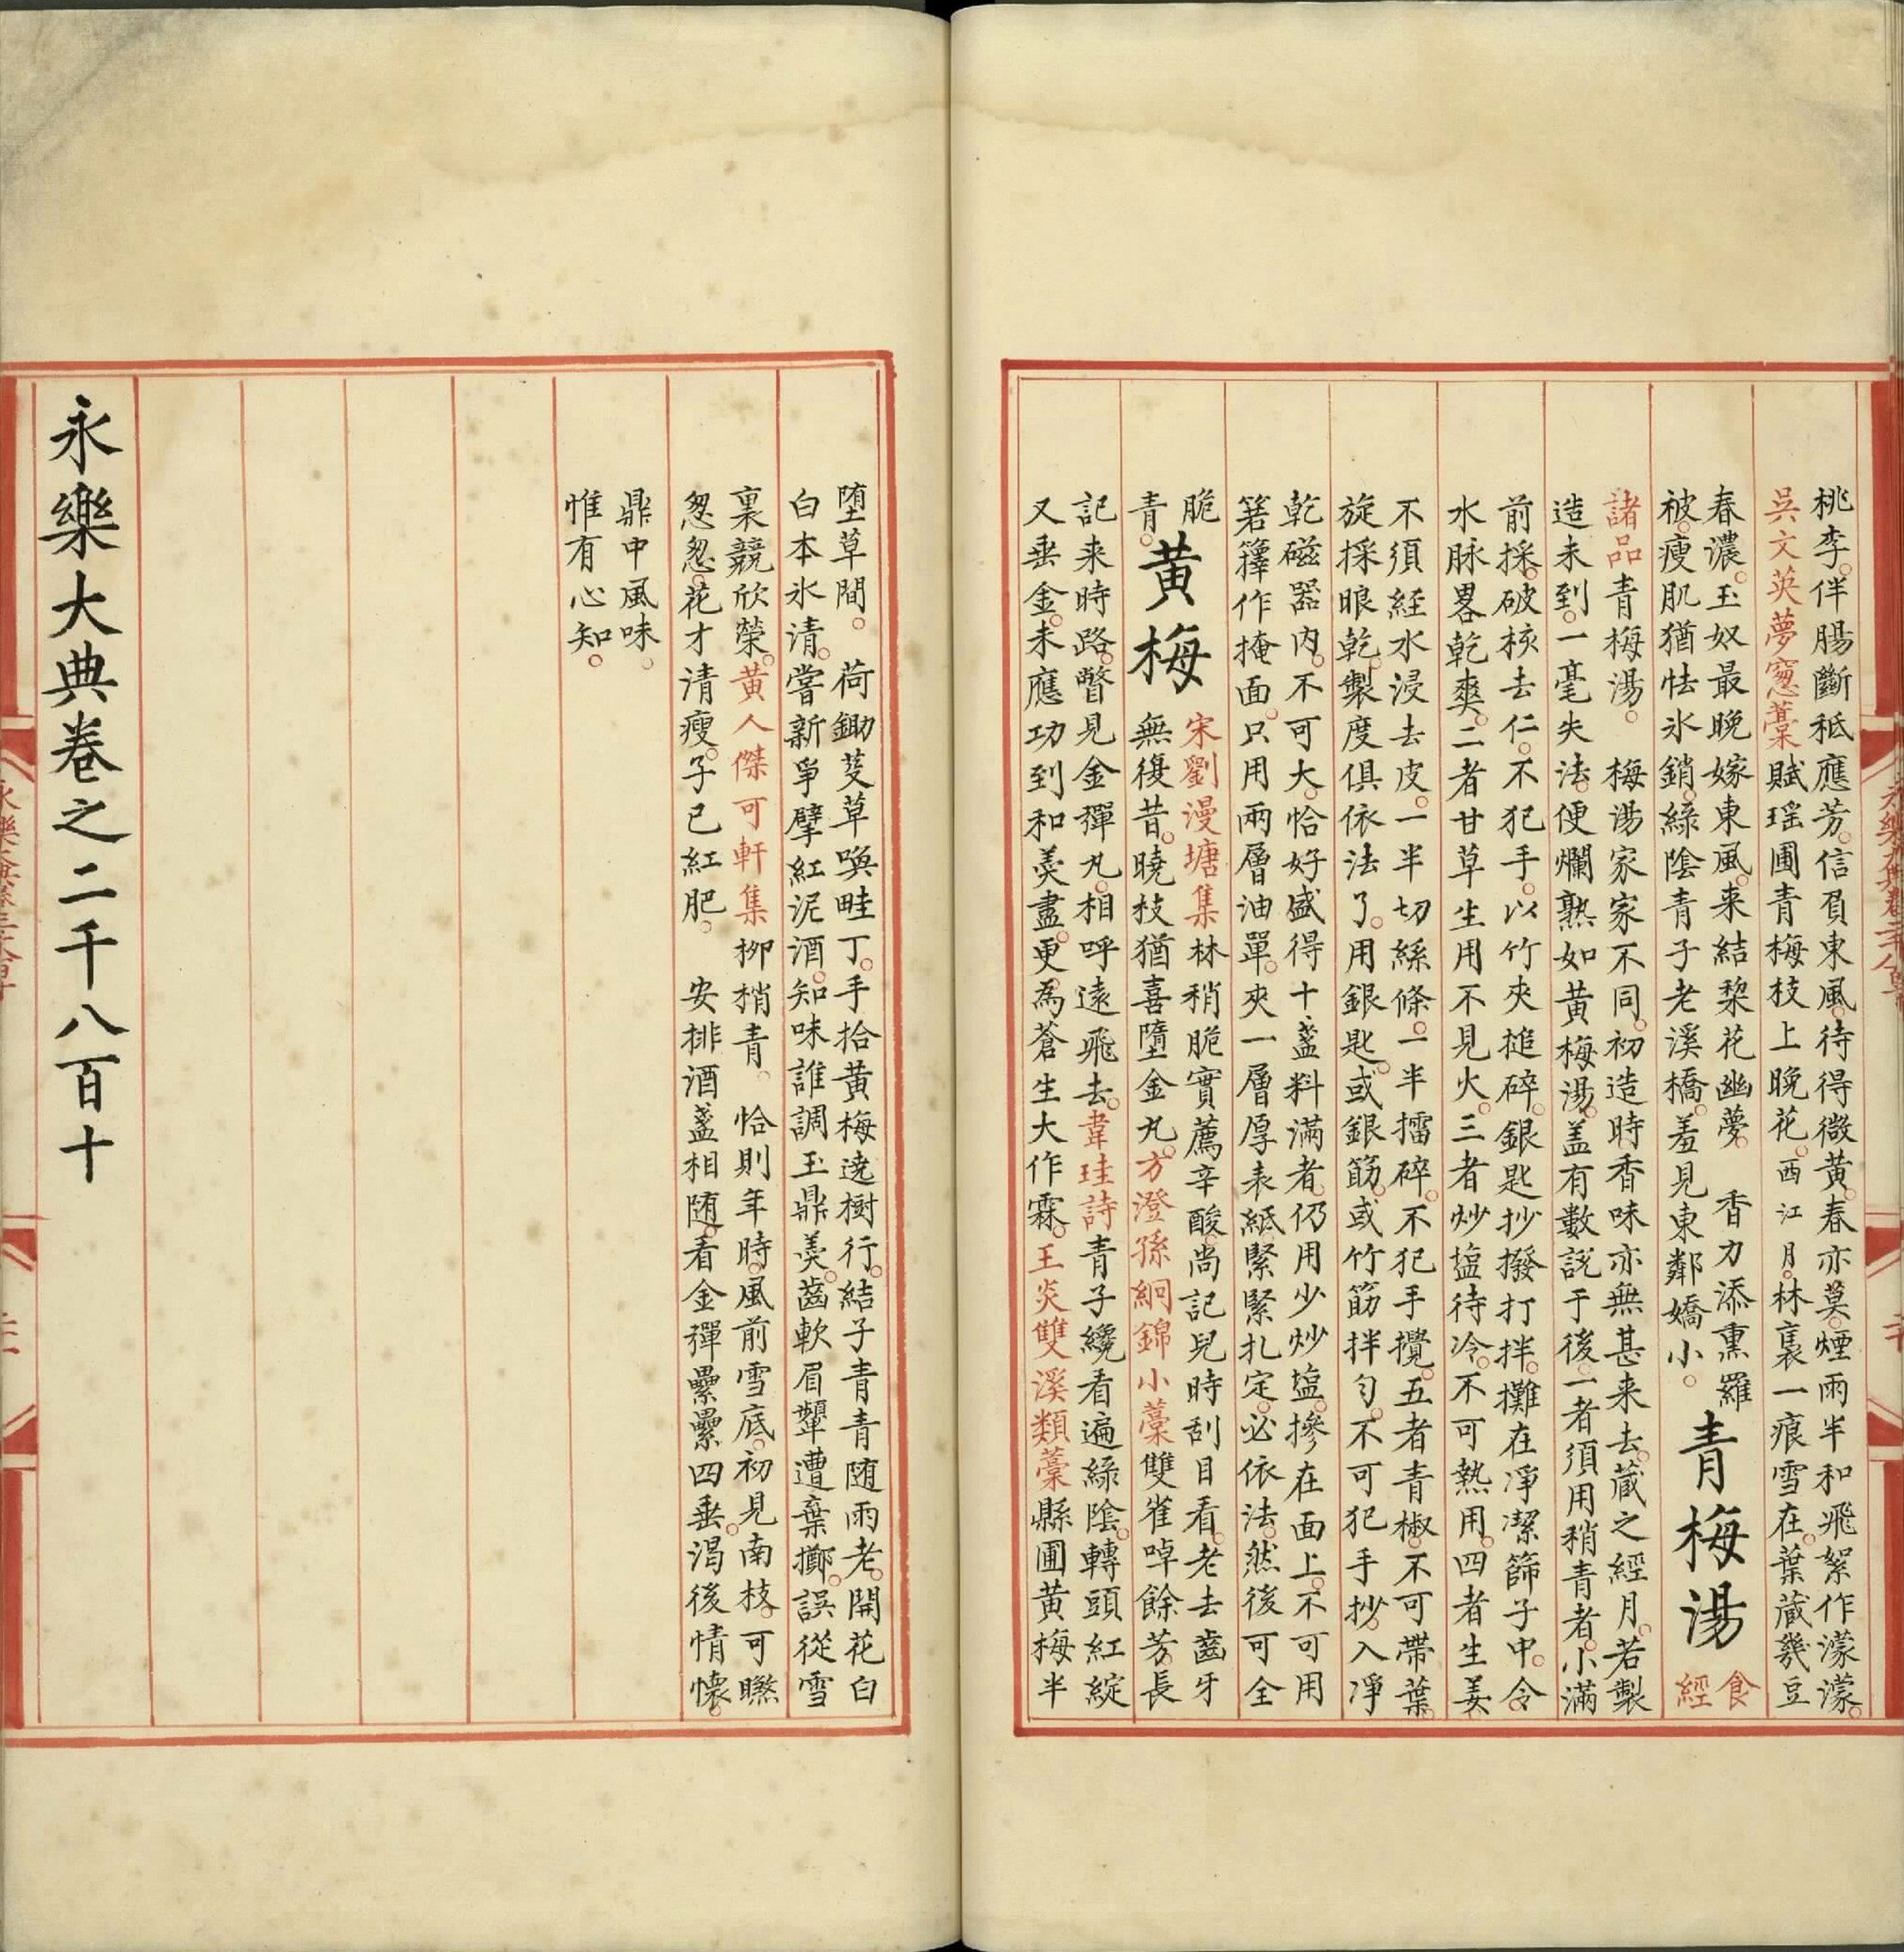 桃李伴腸斷秪應芳信負東風待得微黃春亦莫煙雨半和飛絮作濛濛
吳文英夢窻藁賦瑤圃青梅枝上晚花西江月林裏一痕雪在葉藏幾豆
春濃玉奴最晚嫁東風来結棃花幽夢 香力添熏羅
被瘦肌猶怯氷銷綠陰青子老溪橋羞見東鄰嬌小
青梅湯
食
經
諸品青梅湯 梅湯家家不同初造時香味亦無甚来去藏之經月若製
造未到一毫失法便爛熟如黃梅湯盖有數説于後一者須用稍青者小滿
前採破核去仁不犯手以竹夾搥碎銀匙抄撥打拌攤在淨潔篩子中令
水脉畧乾爽二者甘草生用不見火三者炒塩待冷不可熱用四者生姜
不須経水浸去皮一半切絲條一半擂碎不犯手攪五者青椒不可帶葉
旋採眼乾製度俱依法了用銀匙或銀筯或竹筯拌匀不可犯手抄入淨
乾磁器内不可大恰好盛得十盞料滿者仍用少炒塩摻在面上不可用
箬籜作掩面只用兩層油單夾一層厚表紙緊緊扎定必依法然後可全
脆
青
黃梅
宋劉漫塘集林稍脆實薦辛酸尚記兒時刮目看老去齒牙
無復昔曉枝猶喜墮金丸方澄孫絅錦小藁雙雀啅餘芳長
記来時路瞥見金彈丸相呼遠飛去韋珪詩青子纔看遍綠陰轉頭紅綻
又垂金未應功到和羹盡更為蒼生大作霖王炎雙溪類藁縣圃黃梅半
堕草間 荷鋤芟草喚畦丁手拾黃梅遶樹行結子青青随雨老開花白
白本氷清嘗新爭擘紅泥酒知味誰調玉鼎羹齒軟眉顰遭棄擲誤從雪
裏競欣榮黃人傑可軒集柳梢青 恰則年時風前雪底初見南枝可㬠
怱怱花才清瘦子已紅肥 安排酒盞相随看金彈纍纍四垂渴後情懐
鼎中風味
惟有心知
永樂大典卷之二千八百十